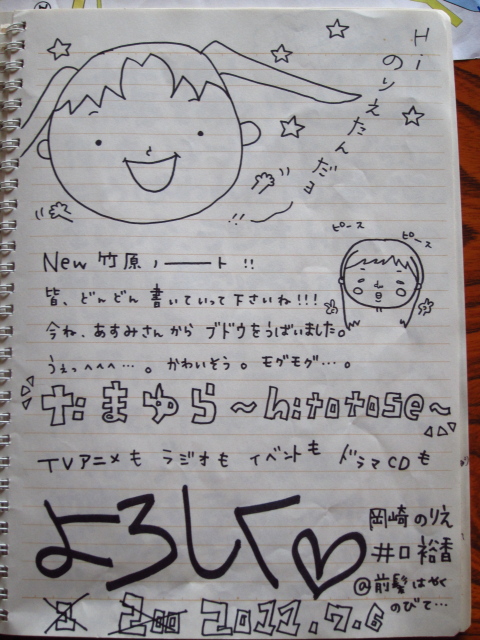 Hi
のりえたんだョ
!!
ピース
ピース
New 竹原ノート !!
皆、どんどん 書いていって下さいね!!!
今ね、あすみさんから ブドウをうばいました。
うぇっへへへ…。かわいそう。モグモグ…。
たまゆら～hitotose～
TVアニメも ラジオも イベントも ドラマCDも
よろしく♡
岡崎のりえ
井口裕香
@前髪はやく
のびて…
2011.7.6